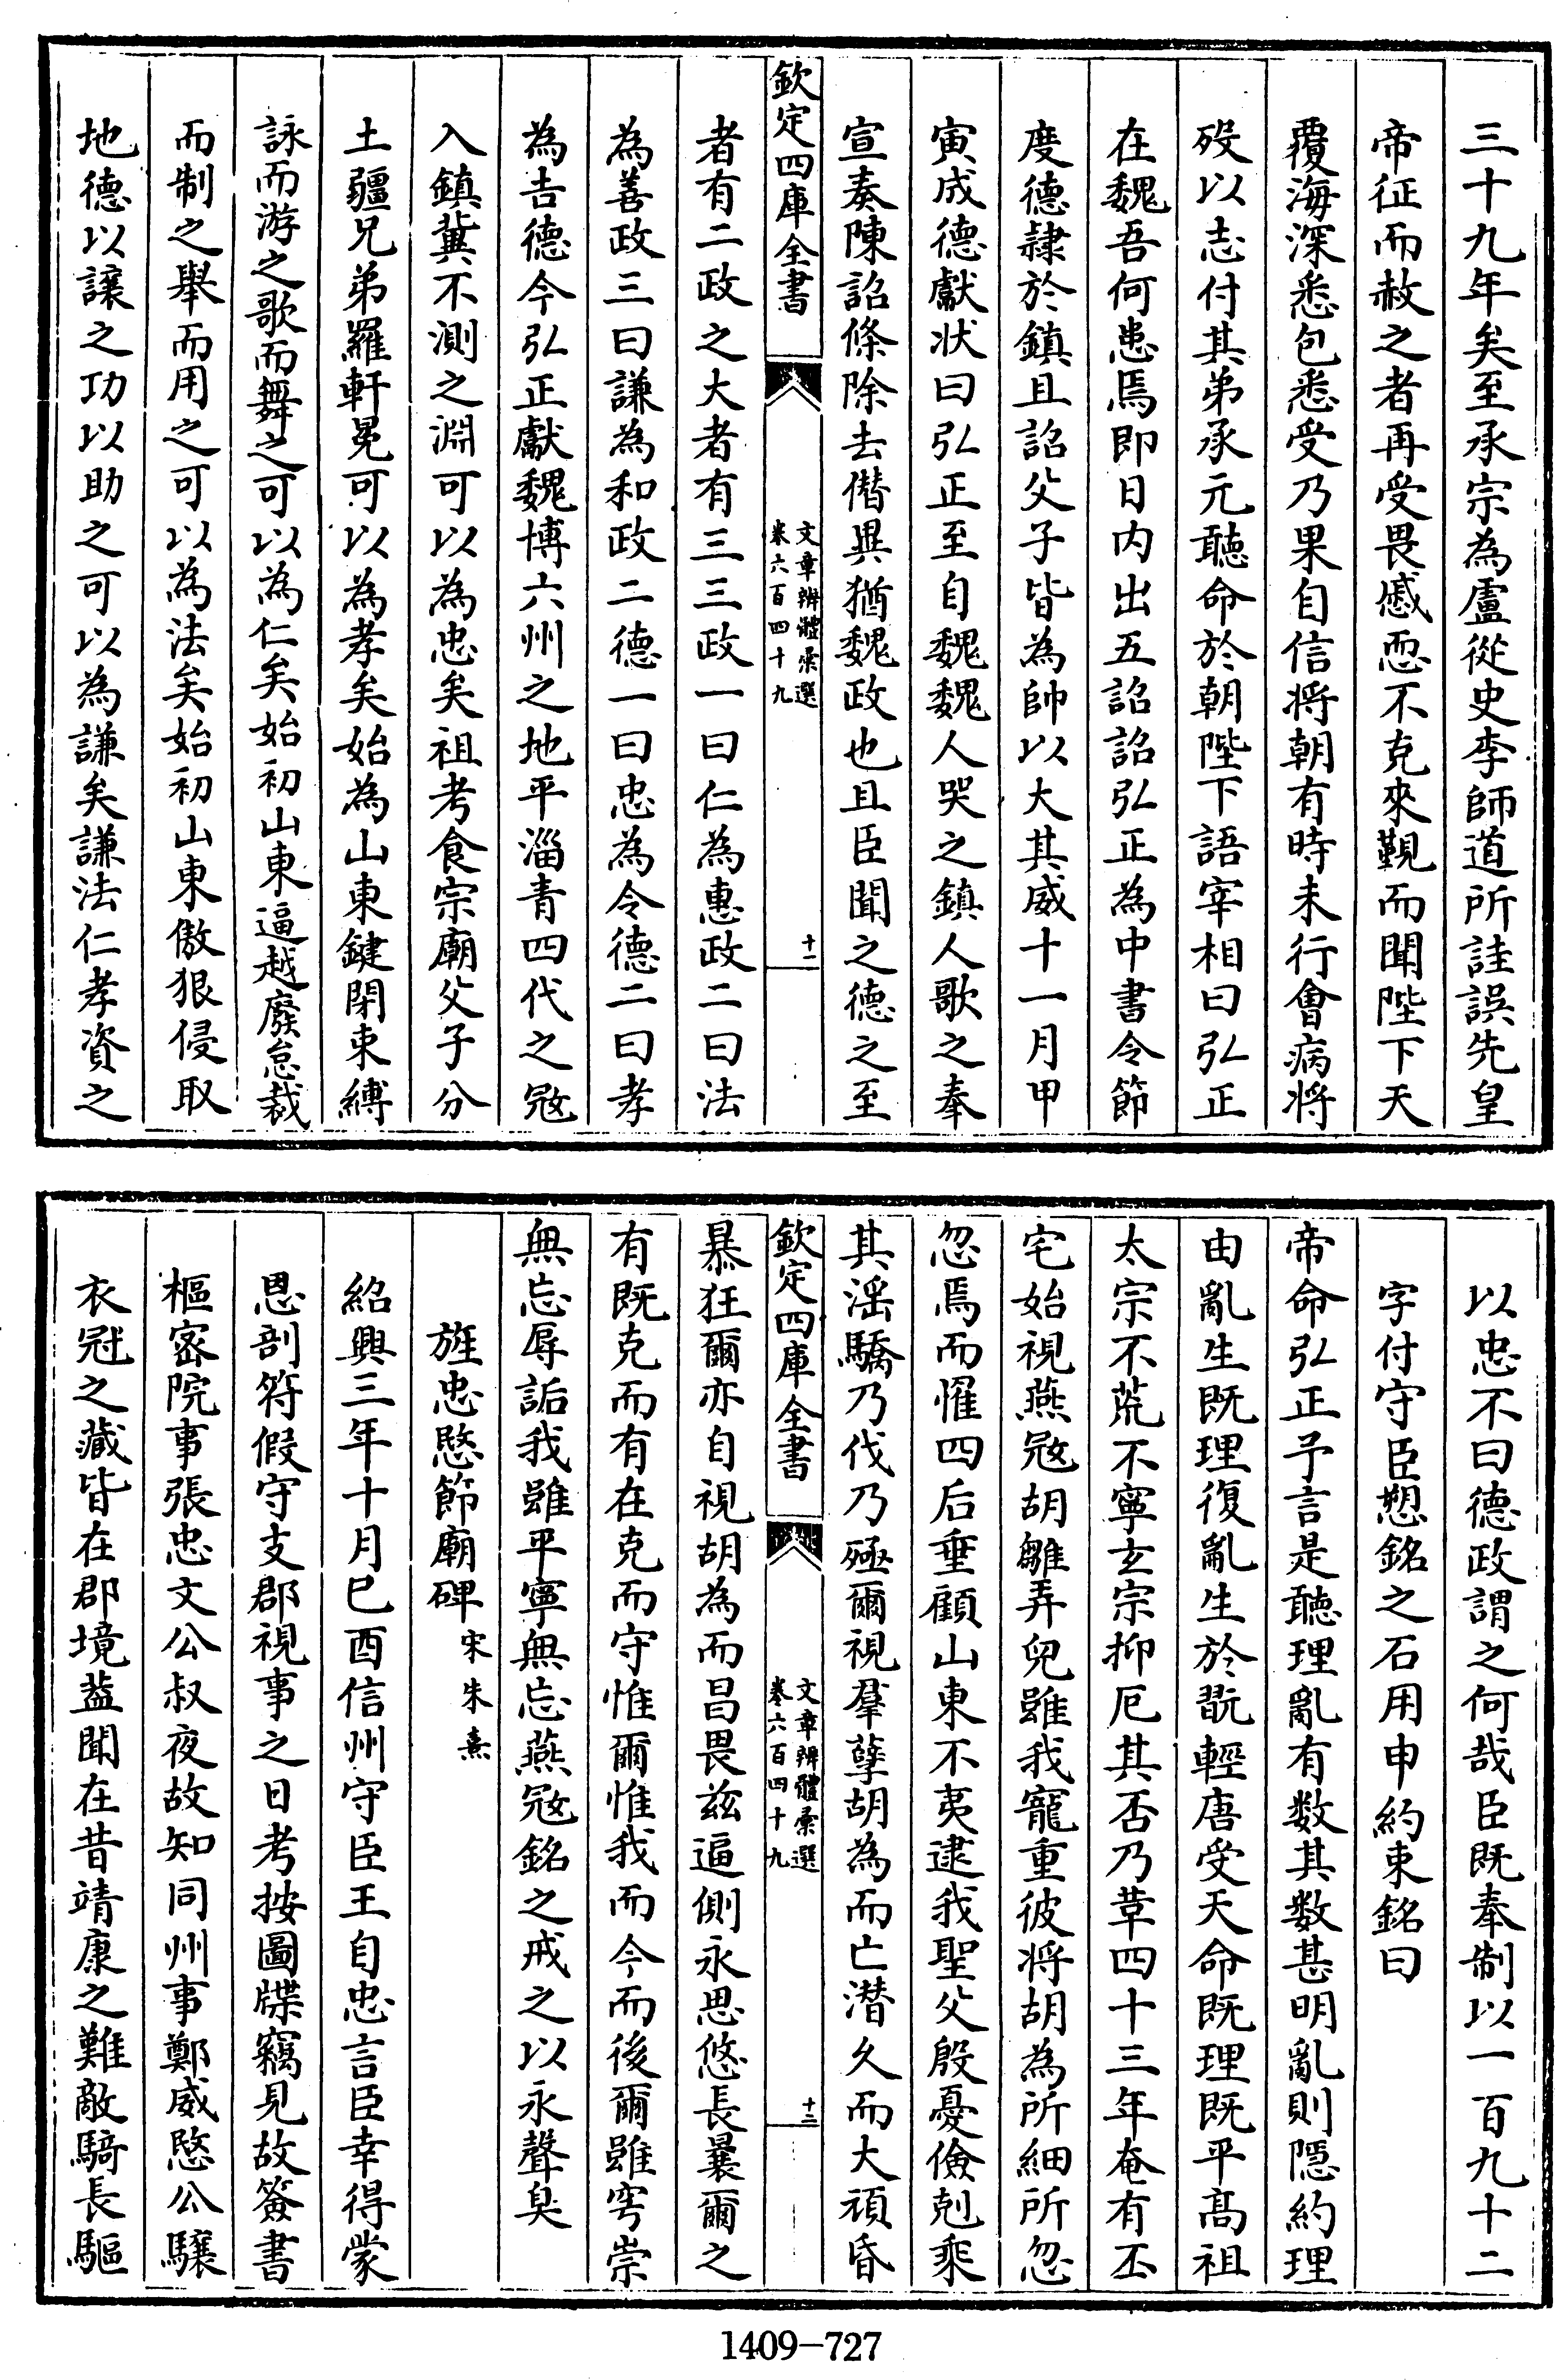 三十九年矣至承宗為盧從史李師道所詿誤先皇
帝征而赦之者再受畏慼恧不克來覲而聞陛下天
覆海深悉包悉受乃果自信将朝有時未行會病将
殁以志付其弟承元聽命於朝陛下語宰相曰弘正
在魏吾何患焉即日内出五詔詔弘正為中書令節
度德隷於鎮且詔父子皆為帥以大其威十一月甲
寅成德獻状曰弘正至自魏魏人哭之鎮人歌之奉
宣奏陳詔條除去僭異猶魏政也且臣聞之德之至
欽定四庫全書
文章辨體彚選
卷六百四十九
十一
者有二政之大者有三三政一曰仁為惠政二曰法
為善政三曰謙為和政二德一曰忠為令德二曰孝
為吉德今弘正獻魏博六州之地平淄青四代之冦
入鎮冀不測之淵可以為忠矣祖考食宗廟父子分
土疆兄弟羅軒冕可以為孝矣始為山東鍵閉束縛
詠而游之歌而舞之可以為仁矣始初山東逼越廢怠裁
而制之舉而用之可以為法矣始初山東傲狠侵取
地德以讓之功以助之可以為謙矣謙法仁孝資之
以忠不曰德政謂之何哉臣既奉制以一百九十二
字付守臣愬銘之石用申約束銘曰
帝命弘正予言是聽理亂有数其数甚明亂則隠約理
由亂生既理復亂生於翫輕唐受天命既理既平髙祖
太宗不荒不寧玄宗抑厄其否乃葶四十三年奄有丕
宅始視燕冦胡雛弄兒雖我寵重彼将胡為所細所忽
忽焉而懼四后垂顧山東不夷逮我聖父殷憂儉剋乘
其滛驕乃伐乃殛爾視羣孽胡為而亡潛久而大頑昏
欽定四庫全書
文章辨體彚選
卷六百四十九
十二
暴狂爾亦自視胡為而昌畏兹逼側永思悠長曩爾之
有既克而有在克而守惟爾惟我而今而後爾雖穹崇
無忘辱詬我雖平寧無忘燕冦銘之戒之以永聲臭
旌忠愍節廟碑 宋朱熹
紹興三年十月巳酉信州守臣王自忠言臣幸得蒙
恩剖符假守支郡視事之日考按圖牒竊見故簽書
樞宻院事張忠文公叔夜故知同州事鄭威愍公驤
衣冠之藏皆在郡境葢聞在昔靖康之難敵騎長驅
1409-727